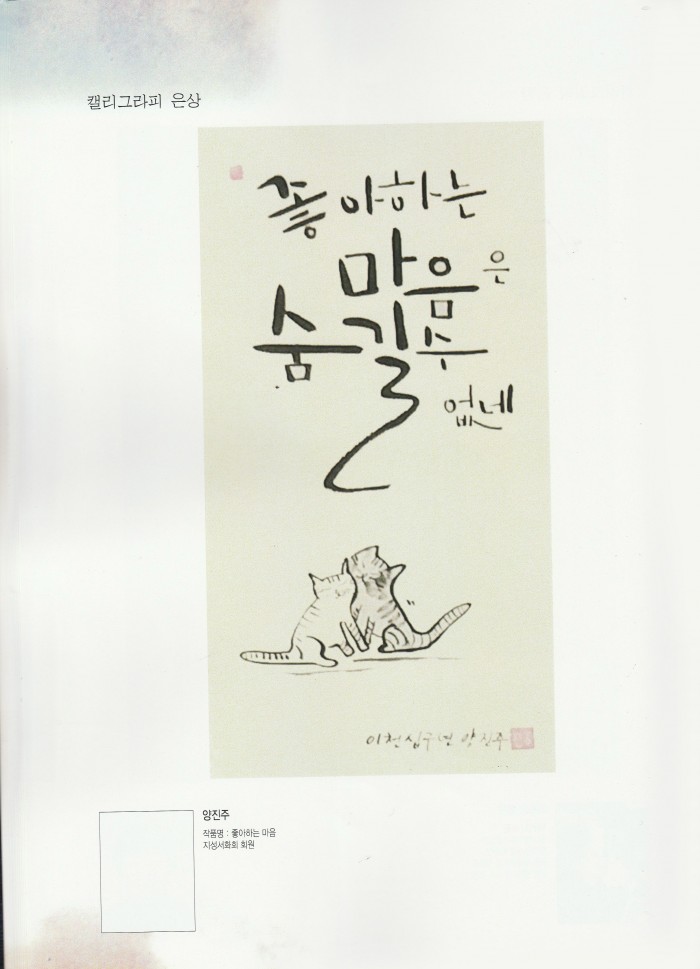 캘리그라피 은상
좋아하는
마음은
숨길수
없네
이천십구년 양진주
양진주
작품명 : 좋아하는 마음
지성서화회 회원